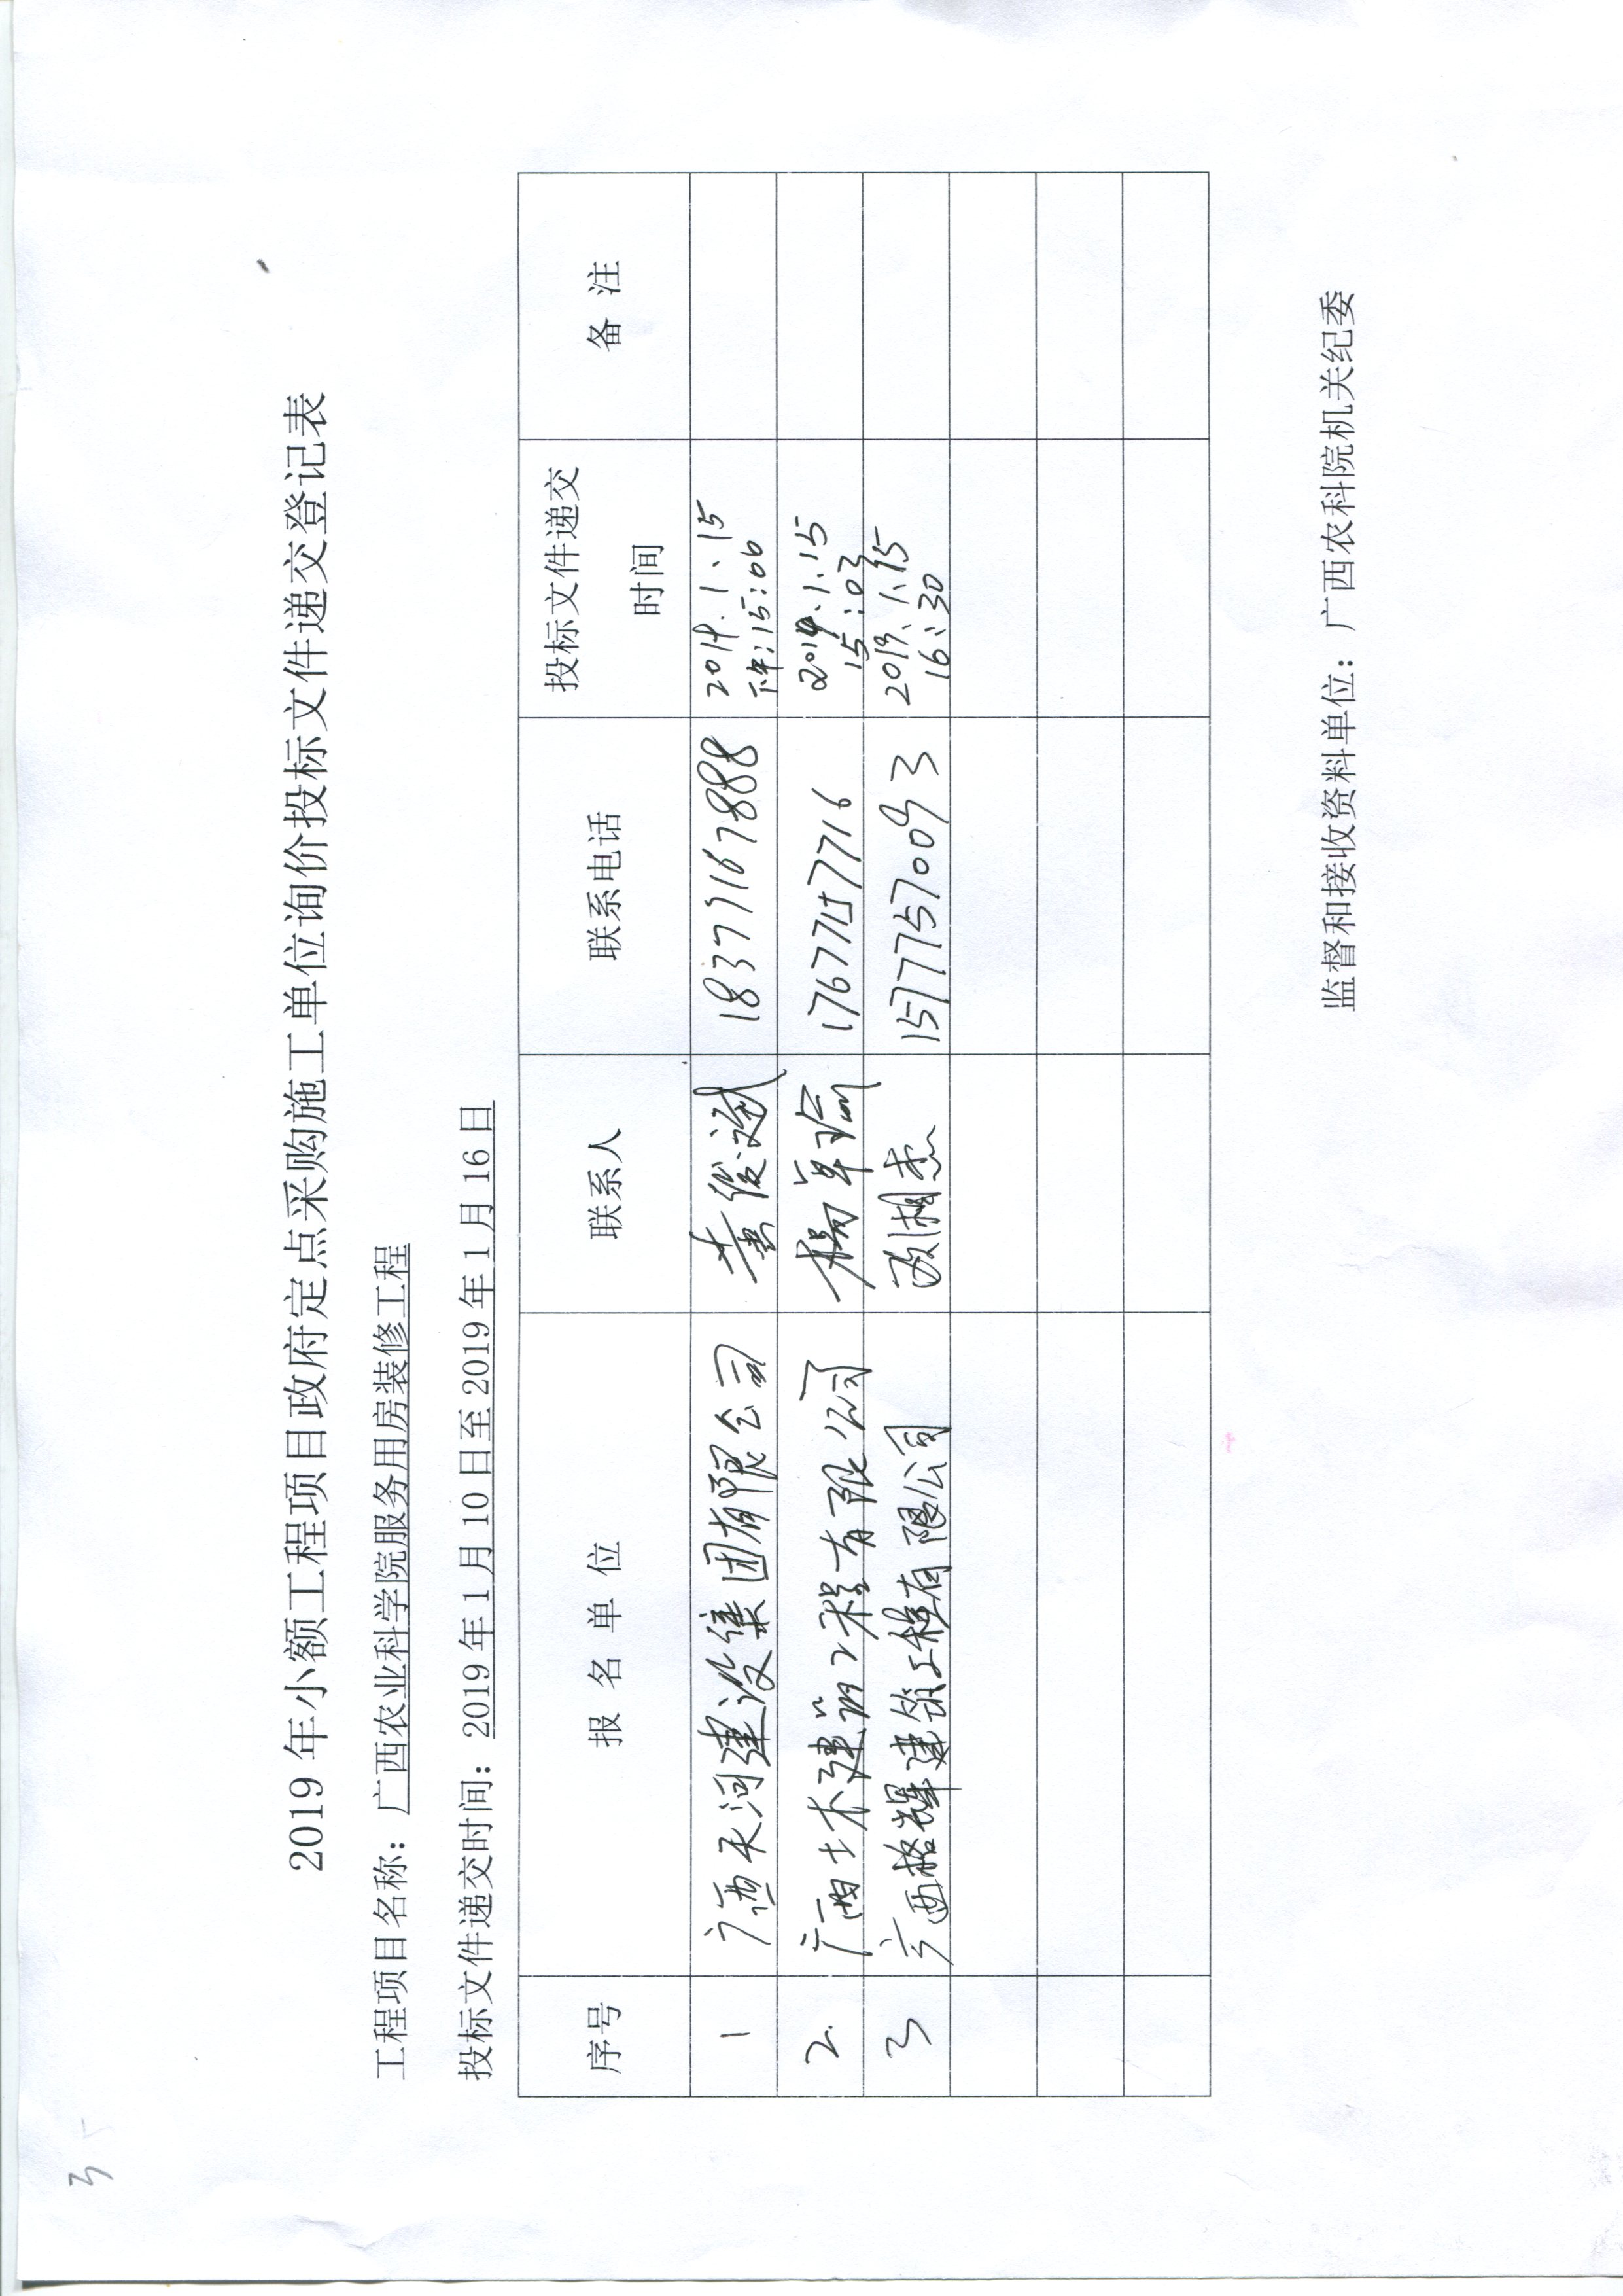 3
2019年小额工程项目政府定点采购施工单位询价投标文件递交登记表
工程项目名称：广西农业科学院服务用房装修工程
投标文件递交时间：2019年1月10日至2019年1月16日
序号 报名单位 联系人 联系电话 投标文件递交时间 备注
1 广西天河建设集团有限公司 18377167888 2019.1.15 下午:15:06
2. 广西土木建筑工程有限公司 17677157716 2019.1.15 15:03
3 广西格辉建筑工程有限公司 15777570093 2019.1.15 16:30
监督和接收资料单位：广西农科院机关纪委